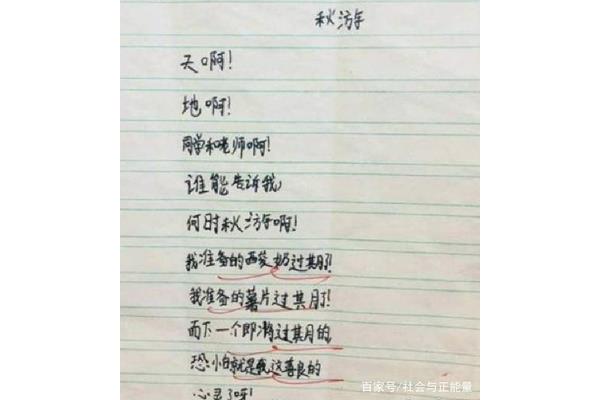 秋游
天啊!
地啊!
同学和老师啊!
谁能告诉我,
何时秋游啊!
我准备的酸奶过期了!
我准备的薯片过期了!
而下一个即将过期的,
恐怕就是我这善良的
心灵了呀!
百家号/社会与正能量